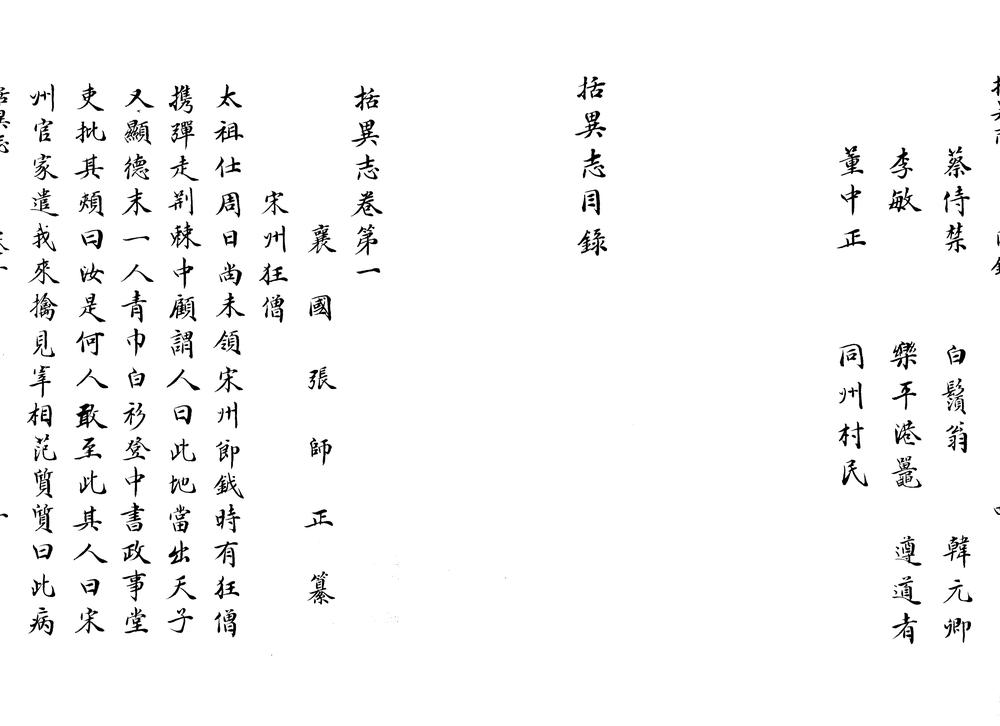 蔡侍禁 白鬚翁 韓元卿
李敏 樂平港鼉 遵道者
董中正 同州村民
括異志目錄
括異志卷第一
襄國張師正纂
宋州狂僧
太祖仕周日尚未領宋州節鉞時有狂僧
携彈走荆棘中顧謂人曰此地當出天子
又顯德末一人青巾白衫登中書政事堂
吏批其頰曰汝是何人敢至此其人曰宋
州官家遣我來擒見宰相范質質曰此病